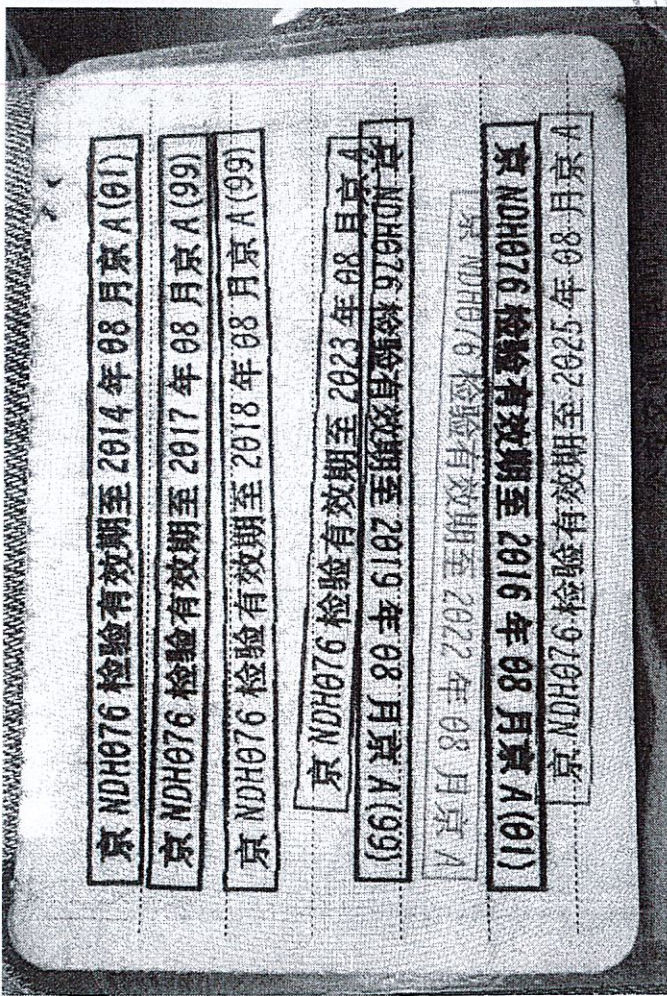 京 NDH076 检验有效期至 2014 年 08 月京 A(01)
京 NDH076 检验有效期至 2017 年 08 月京 A(99)
京 NDH076 检验有效期至 2018 年 08 月京 A(99)
京 NDH076 检验有效期至 2023 年 08 月京 A
京 NDH076 检验有效期至 2019 年 08 月京 A(99)
京 NDH076 检验有效期至 2022 年 08 月京 A
京 NDH076 检验有效期至 2016 年 08 月京 A(01)
京 NDH076 检验有效期至 2025 年 08 月京 A